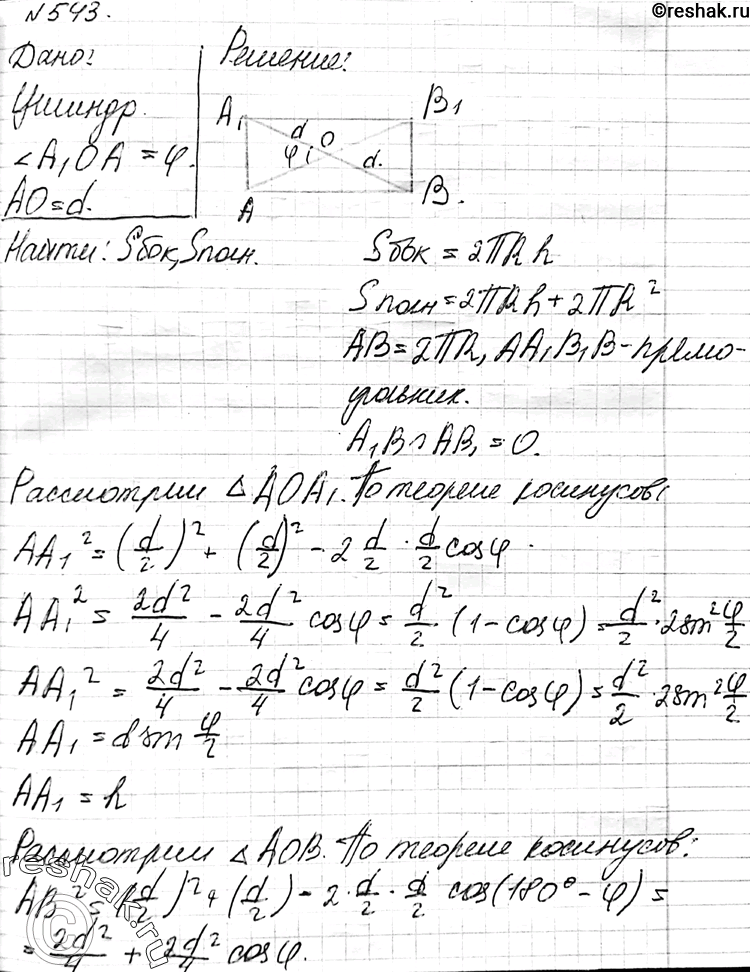 ©reshak.ru
№543.
Дано:
Цилиндр.
∠A₁OA = φ.
AO = d.
Решение:
A₁ B₁
d O
φ d.
A B.
Найти: Sбок, Sполн.
Sбок = 2πRh
Sполн = 2πRh + 2πR²
AB = 2πR, AA₁B₁B - прямо-
угольник.
A₁B ∩ AB₁ = O.
Рассмотрим △AOA₁. По теореме косинусов:
AA₁² = (d/2)² + (d/2)² - 2 d/2 · d/2 cosφ.
AA₁² = 2d²/4 - 2d²/4 cosφ = d²/2 · (1 - cosφ) = d²/2 · 2sin² φ/2
AA₁² = 2d²/4 - 2d²/4 cosφ = d²/2 (1 - cosφ) = d²/2 · 2sin² φ/2
AA₁ = d sin φ/2
AA₁ = h
Рассмотрим △AOB. По теореме косинусов:
AB² = (d/2)² + (d/2) - 2 · d/2 · d/2 cos(180° - φ) =
= 2d²/4 + 2d²/4 cosφ.
reshak.ru